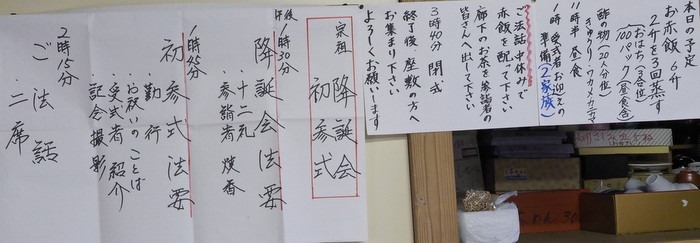 本日の予定
お赤飯 6斤
2斤を3回蒸す
おはち(3合位)
100パック(昼食含)
酢の物(20人分位)
きゅうり・ワカメ・カニカマ
11時半 昼食
1時 受式者お迎えの
準備(2家族)
ご法話 中休みで
赤飯を配って下さい
廊下のお茶を参詣者の
皆さんへ出して下さい
3時40分 閉式
終了後 座敷の方へ
お集まり下さい
よろしくお願いします
宗祖 降誕会
初参式
午後
1時30分
降誕会法要
・十二礼
・参詣者焼香
1時45分
初参式法要
・勤行
・お祝いのことば
・受式者紹介
・記念撮影
2時15分
ご法話 二席